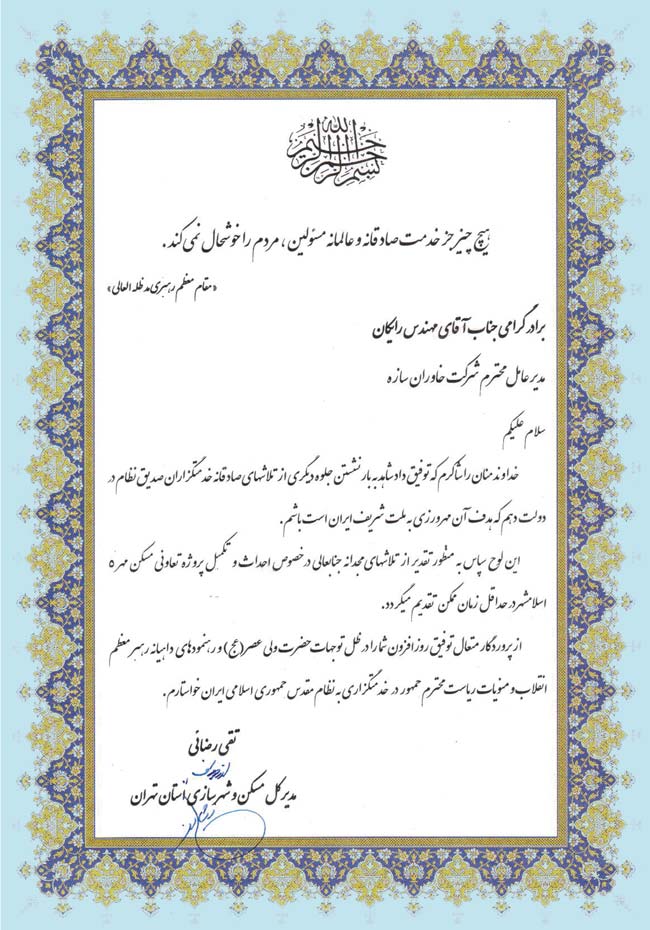 بسم الله الرحمن الرحیم
هیچ چیز جز خدمت صادقانه و عالمانه مسئولین ، مردم را خوشحال نمی کند .
«مقام معظم رهبری مدظله العالی»
برادر گرامی جناب آقای مهندس رایکان
مدیر عامل محترم شرکت خاوران سازه
سلام علیکم
خداوند منان را شاکرم که توفیق داد شاهد به بار نشستن جلوه دیگری از تلاشهای صادقانه خدمتگزاران صدیق نظام در
دولت دهم که هدف آن مهرورزی به ملت شریف ایران است باشم .
این لوح سپاس به منظور تقدیر از تلاشهای مجدانه جنابعالی در خصوص احداث و تکمیل پروژه تعاونی مسکن مهر ۵
اسلامشهر در حداقل زمان ممکن تقدیم میگردد.
از پروردگار متعال توفیق روزافزون شما را در ظل توجهات حضرت ولی عصر(عج) و رهنمودهای داهیانه رهبر معظم
انقلاب و منویات ریاست محترم جمهور در خدمتگزاری به نظام مقدس جمهوری اسلامی ایران خواستارم .
تقی رضائی
مدیر کل مسکن و شهرسازی استان تهران